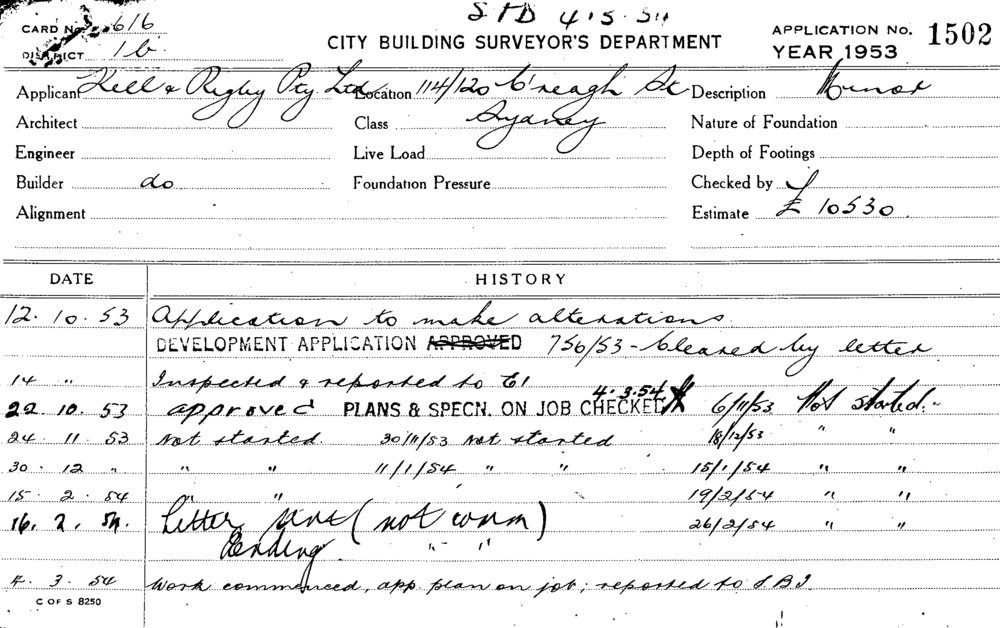 STD 4.5.54
CARD No. 616
CITY BUILDING SURVEYOR'S DEPARTMENT
APPLICATION No. 1502
DISTRICT 1b.
YEAR 1953
Applicant Kell & Rigby Pty Ltd Location 114/120 C'reagh St Description Minor
Architect Class Sydney Nature of Foundation
Engineer Live Load Depth of Footings
Builder do Foundation Pressure Checked by
Alignment Estimate £ 10530.
DATE HISTORY
12. 10. 53 Application to make alterations.
DEVELOPMENT APPLICATION APPROVED 756/53 - Cleared by letter
14 " Inspected & reported to
4.3.54
22. 10. 53 approved PLANS & SPECN. ON JOB CHECKED 6/11/53 Not started.-
24. 11. 53 Not started. 30/11/53 Not started 18/12/53 " "
30. 12 " " " 11/1/54 " " 15/1/54 " "
15. 2. 54 " " 19/2/54 " "
16. 2. 54. Letter sent (not comm) 26/2/54 " "
Pending. " "
4. 3. 54 Work commenced, app plan on job; reported to SBI
C OF S 8250